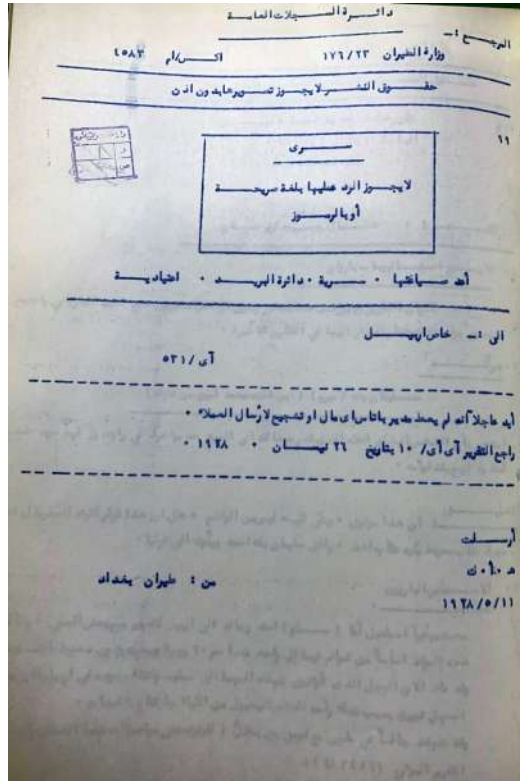 دائرة السجلات العامة
المرجع :ـ
وزارة الطيران ١٧٦/٢٣ اكس/ام ٤٥٨٣
حقوق النشر لا يجوز تصويرها بدون اذن
١٩
سرى
لا يجوز الرد عليها بلغة صريحة
أو بالرموز
أعد صياغتها ٠ سرية ٠ دائرة البريد ٠ اعتيادية
الى :ـ خاص اربيل
آى/٥٣١
أيد عاجلا انه لم يعط مدير باتاس اى مال او تشجيع لارسال العملاء
راجع التقرير آى أى/ ١٠ بتاريخ ٢٦ نيسان ٠ ١٩٢٨ ٠
أرسلت
من : طيران بغداد
١٩٢٨/٥/١١